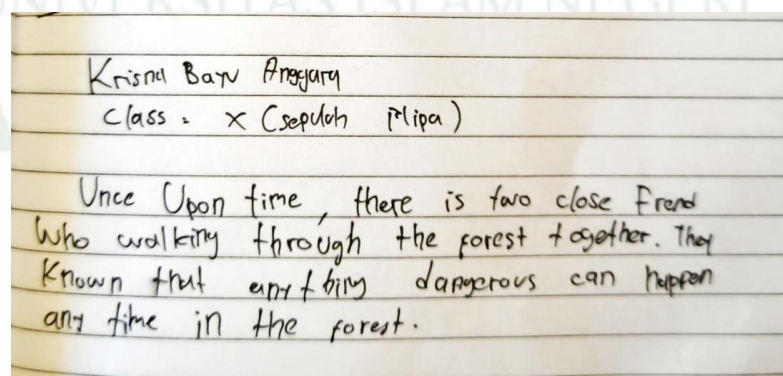 Krisna Bayu Anggara
Class : X (sepuluh Mipa)
Once Upon time, there is two close Frend
Who walking through the forest together. They
Known that anything dangerous can happen
any time in the forest.